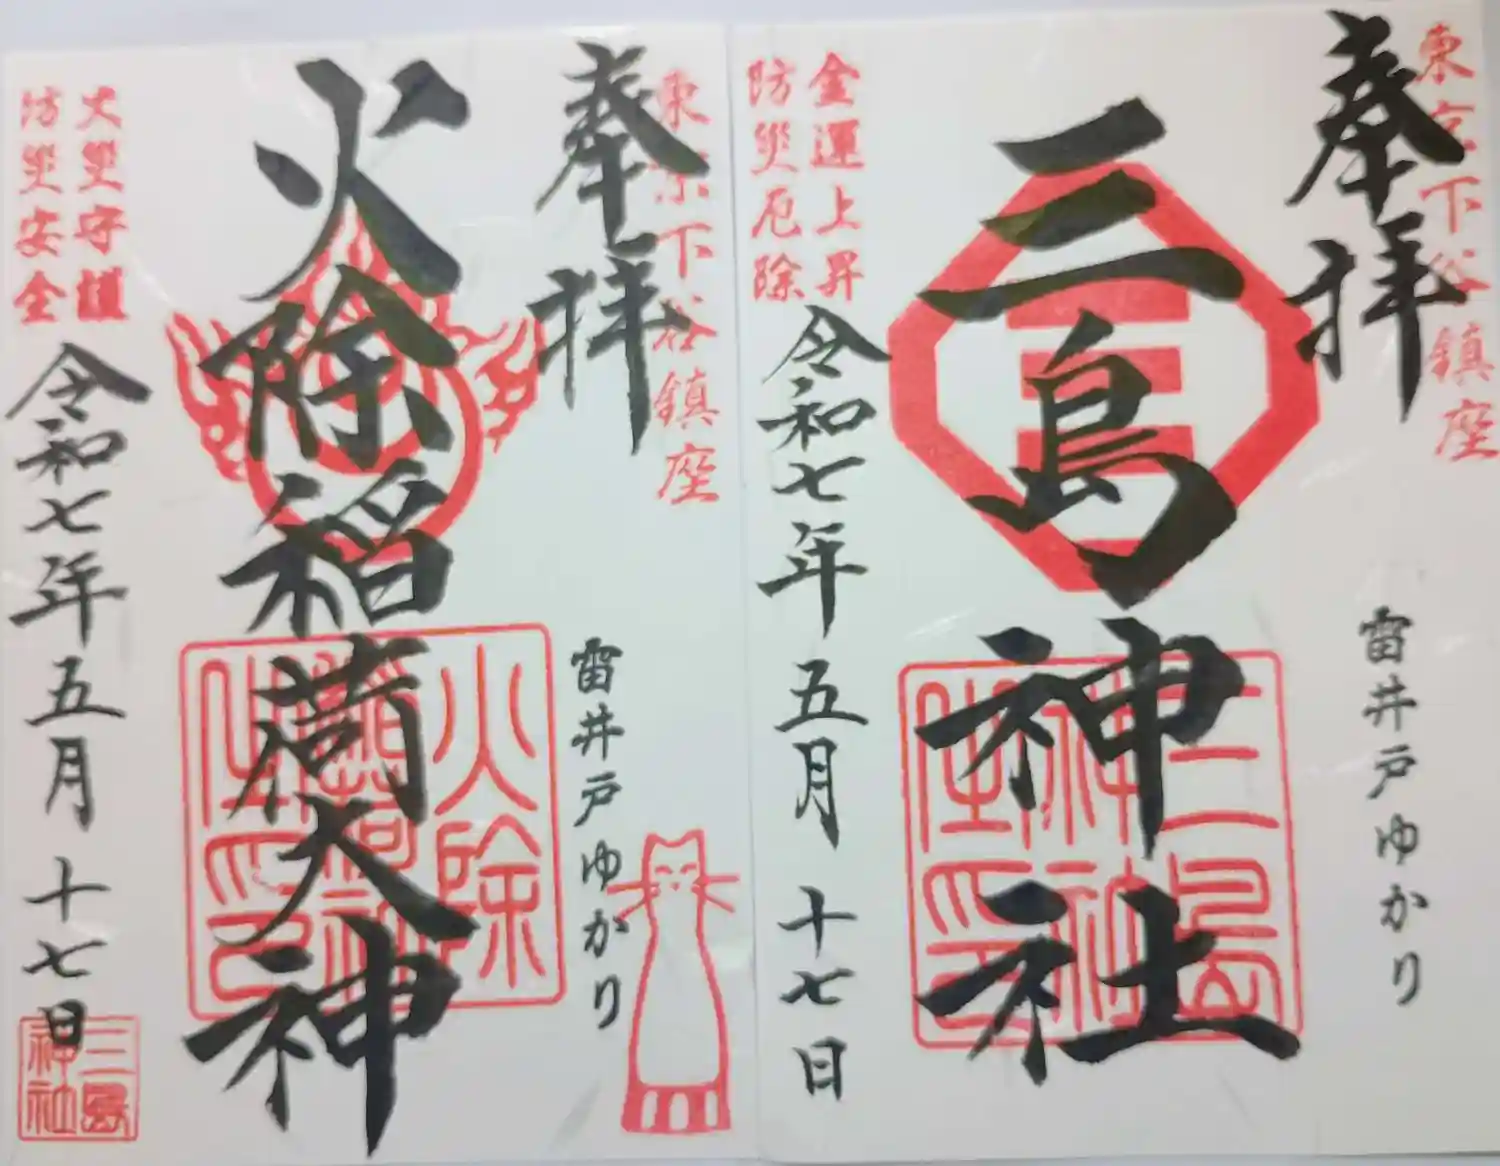 東京下谷鎮座
奉拝
雷井戸ゆかり
三島神社
三島
神社
金運上昇
防災厄除
令和七年五月十七日
東京下谷鎮座
奉拝
雷井戸ゆかり
火除稲荷大神
火除
火災守護
防災安全
令和七年五月十七日
三島
神社